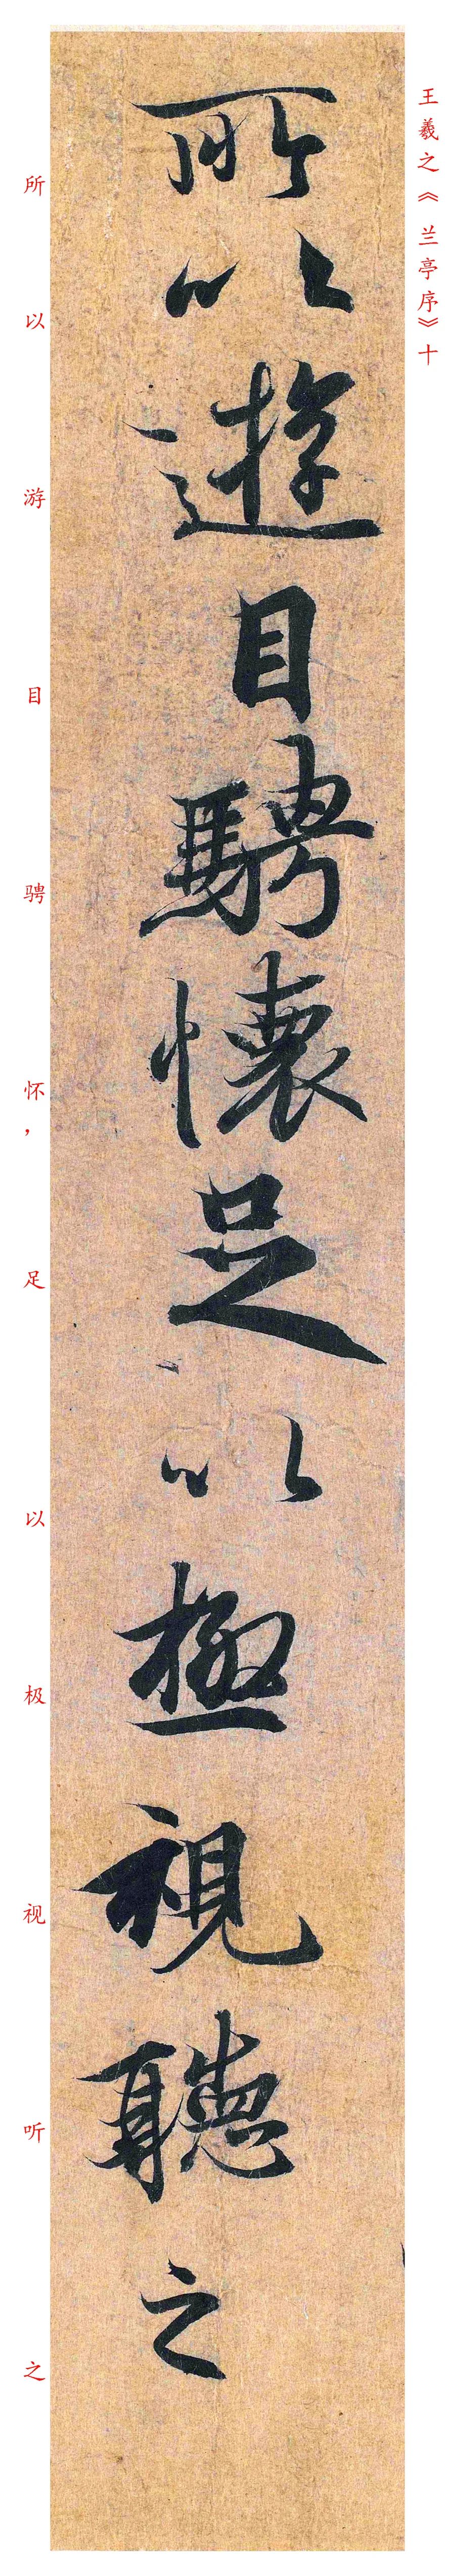 王羲之《兰亭序》十
所以遊目騁懷足以極視聽之
所以游目骋怀，足以极视听之